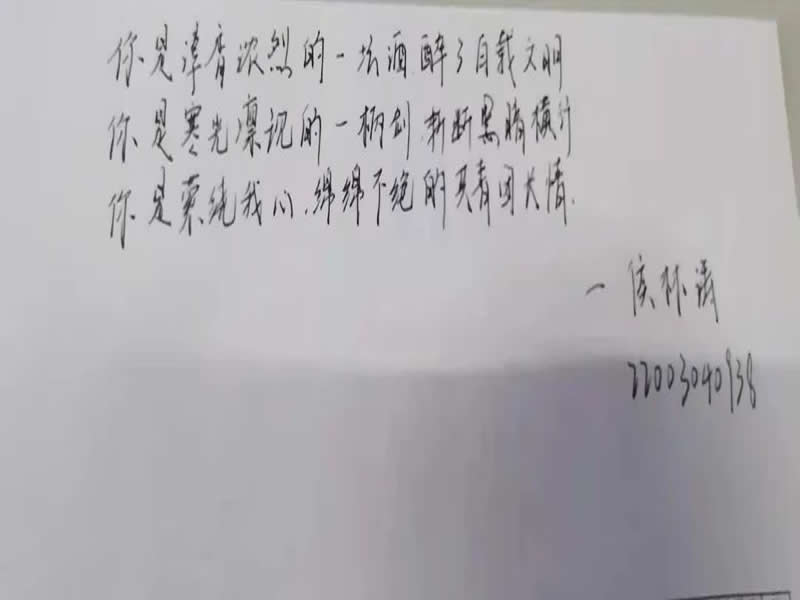 你是清香浓烈的一坛酒,醉了自我文明
你是寒光凛冽的一柄剑,斩断黑暗横行
你是萦绕我心,绵绵不绝的共青团大情.
—侯林涛
22003040938